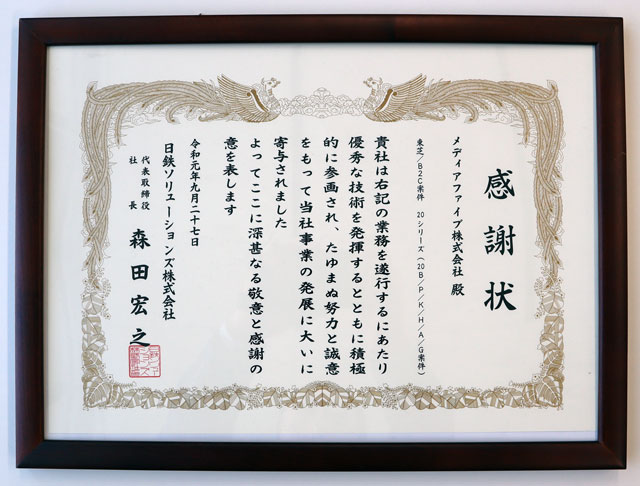 感謝状
メディアファイブ株式会社 殿
東芝/B2C案件 20シリーズ(20B/P/K/H/A/G案件)
貴社は右記の業務を遂行するにあたり
優秀な技術を発揮するとともに積極
的に参画され、たゆまぬ努力と誠意
をもって当社事業の発展に大いに
寄与されました
よってここに深甚なる敬意と感謝の
意を表します
令和元年九月二十七日
日鉄ソリューションズ株式会社
代表取締役
社長
森田宏之